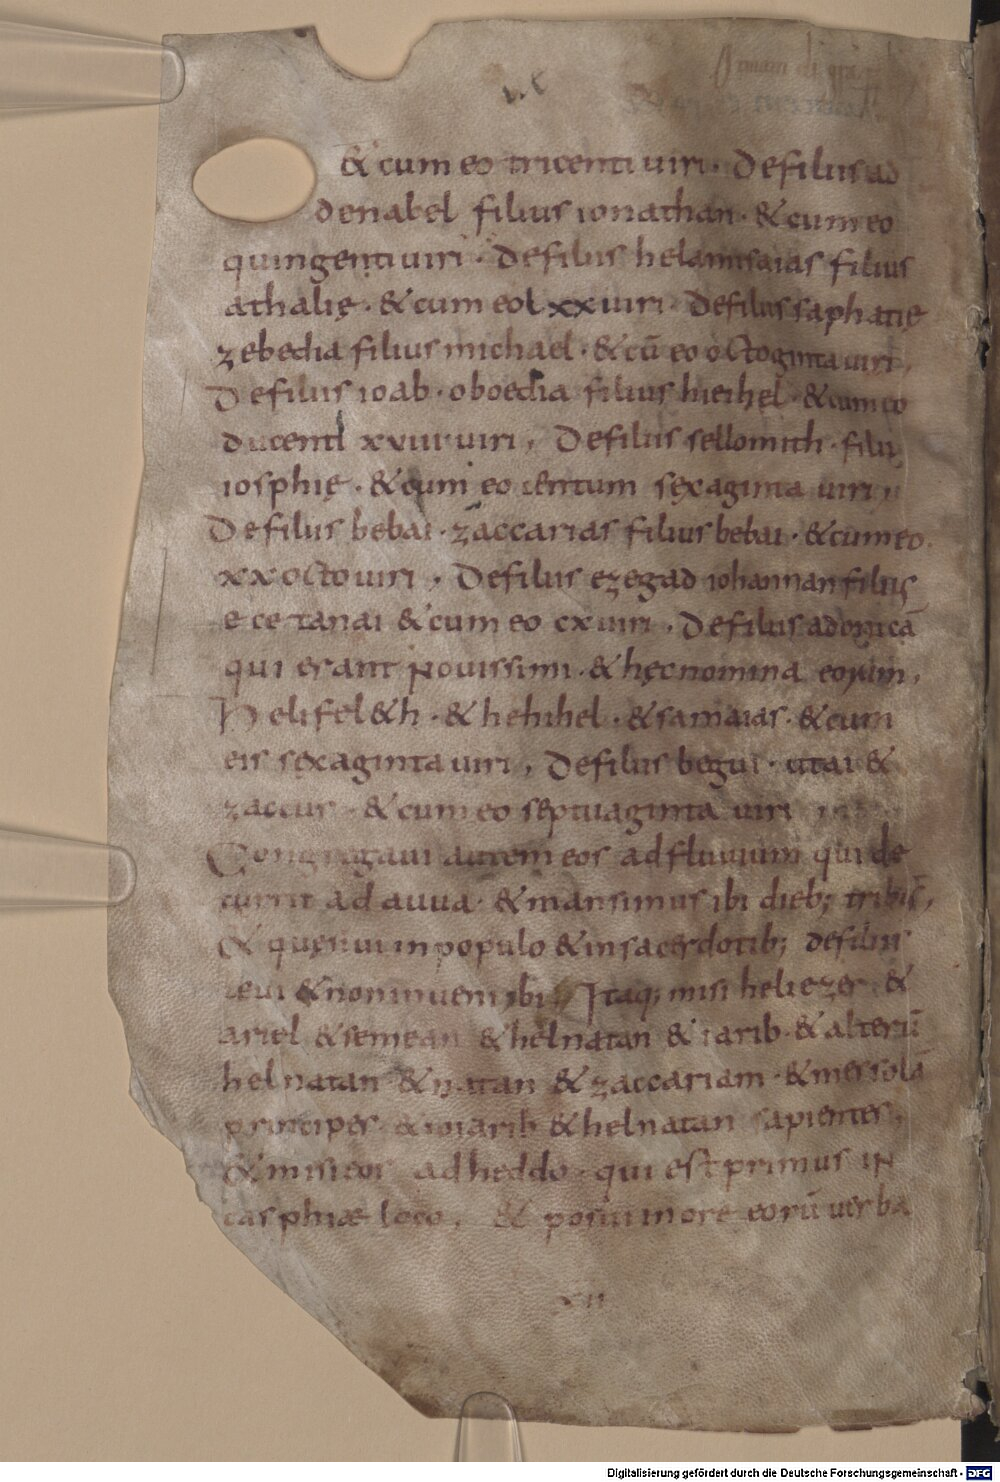 & cum eo tricenti uiri. De filiis ad
denabel filius ionathan. & cum eo
quingenti uiri. De filiis helamisaias filius
athalię. & cum eo lxx uiri. De filiis saphatię
zebedia filius michael. & cū eo octoginta uiri,
De filiis ioab. oboedia filius hieihel. & cum eo
ducenti xuiii uiri, De filiis sellomith. filii
iosphię. & cum eo centum sexaginta uiri
De filiis bebai. zaccarias filius bebai. & cum eo
xx octo uiri, De filiis ezegad iohannan filius
ecetanai & cum eo cx uiri, De filiis adonicā
qui erant nouissimi. & hęc nomina eorum,
Helifel&h. & hehihel. & samaias. & cum
eis sexaginta uiri, De filiis begui. utai &
zaccur. & cum eo septuaginta uiri
Congregaui autem eos ad fluuium qui de
currit ad auua. & mansimus ibi dieb; tribus,
& quęsiui in populo & in sacerdotib; de filiis
leui & non inueni ibi, Itaq; misi heliezer &
ariel & semean & helnatan & iarib. & alterū
helnatan & natan & zaccariam. & mesolā
principes. & ioiarib & helnatan sapientes,
& misi eos ad heddo. qui est primus in
casphiæ loco, & posui in ore eorū uerba
xii
Digitalisierung gefördert durch die Deutsche Forschungsgemeinschaft - DFG